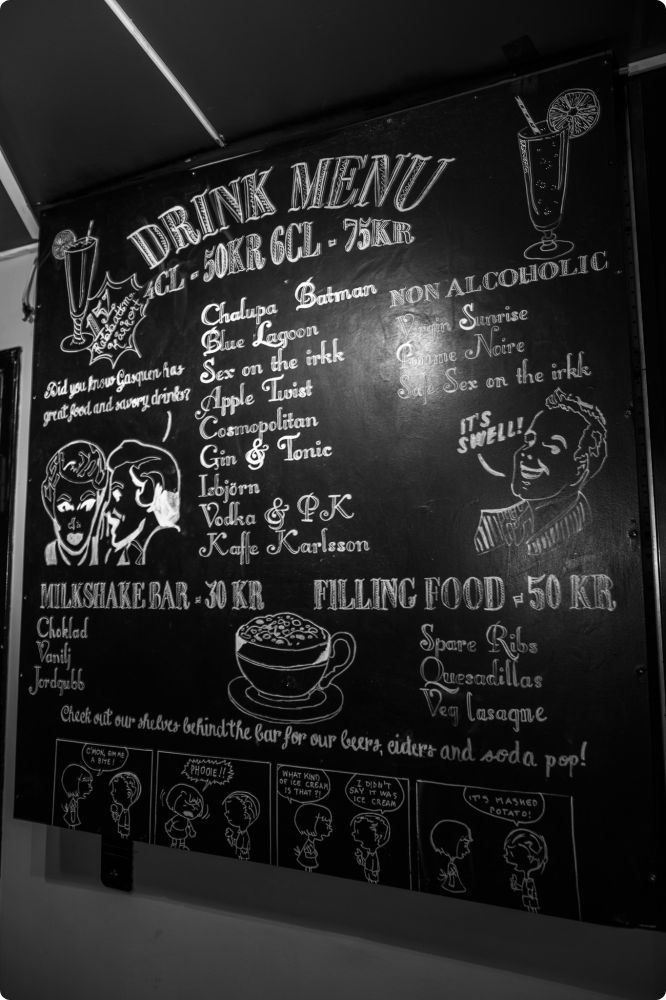 DRINK MENU
4CL - 50KR 6CL - 75KR
15%
Did you know Gasquen has
great food and savory drinks?
Chalupa Batman
Blue Lagoon
Sex on the irkk
Apple Twist
Cosmopolitan
Gin & Tonic
Isbjörn
Vodka & PK
Kaffe Karlsson
NON ALCOHOLIC
Virgin Sunrise
Noire
Safe Sex on the irkk
IT'S
SWELL!
MILKSHAKE BAR - 30 KR
Choklad
Vanilj
Jordgubb
FILLING FOOD - 50 KR
Spare Ribs
Quesadillas
Veg lasagne
Check out our shelves behind the bar for our beers, ciders and soda pop!
C'MON, GIMME
A BITE!
PHOOIE!!
WHAT KIND
OF ICE CREAM
IS THAT?!
I DIDN'T
SAY IT WAS
ICE CREAM
IT'S MASHED
POTATO!